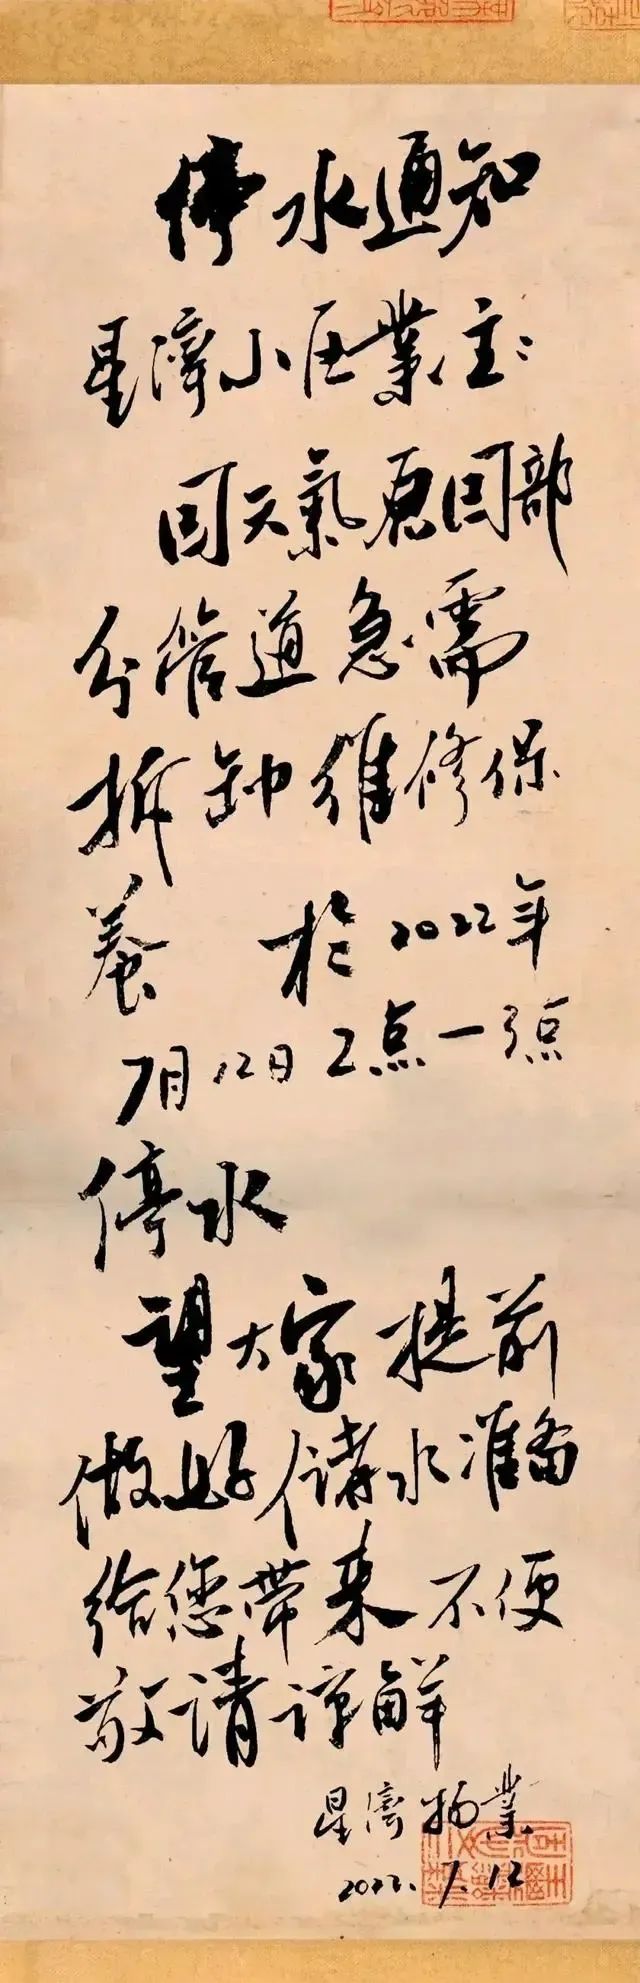 停水通知
星濟小区業主：
因天氣原因部
分管道急需
拆卸维修保
養 於2022年
7月12日2点一3点
停水
望大家提前
做好储水準备
给您带来不便
敬请諒解
星濟物業
2022.7.12